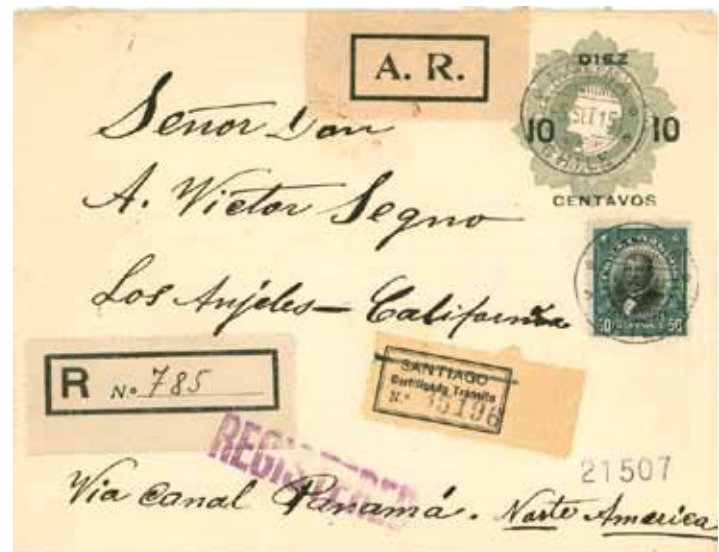 A. R.
DIEZ
10 10
CENTAVOS
SET 15
CHILE
Señor Don
A. Victor Segno
Los Anjeles - California
50 50
R N.o 785
SANTIAGO
Certificado Transito
N.o 35196
REGISTERED
21507
Via Canal Panamá. Norte America